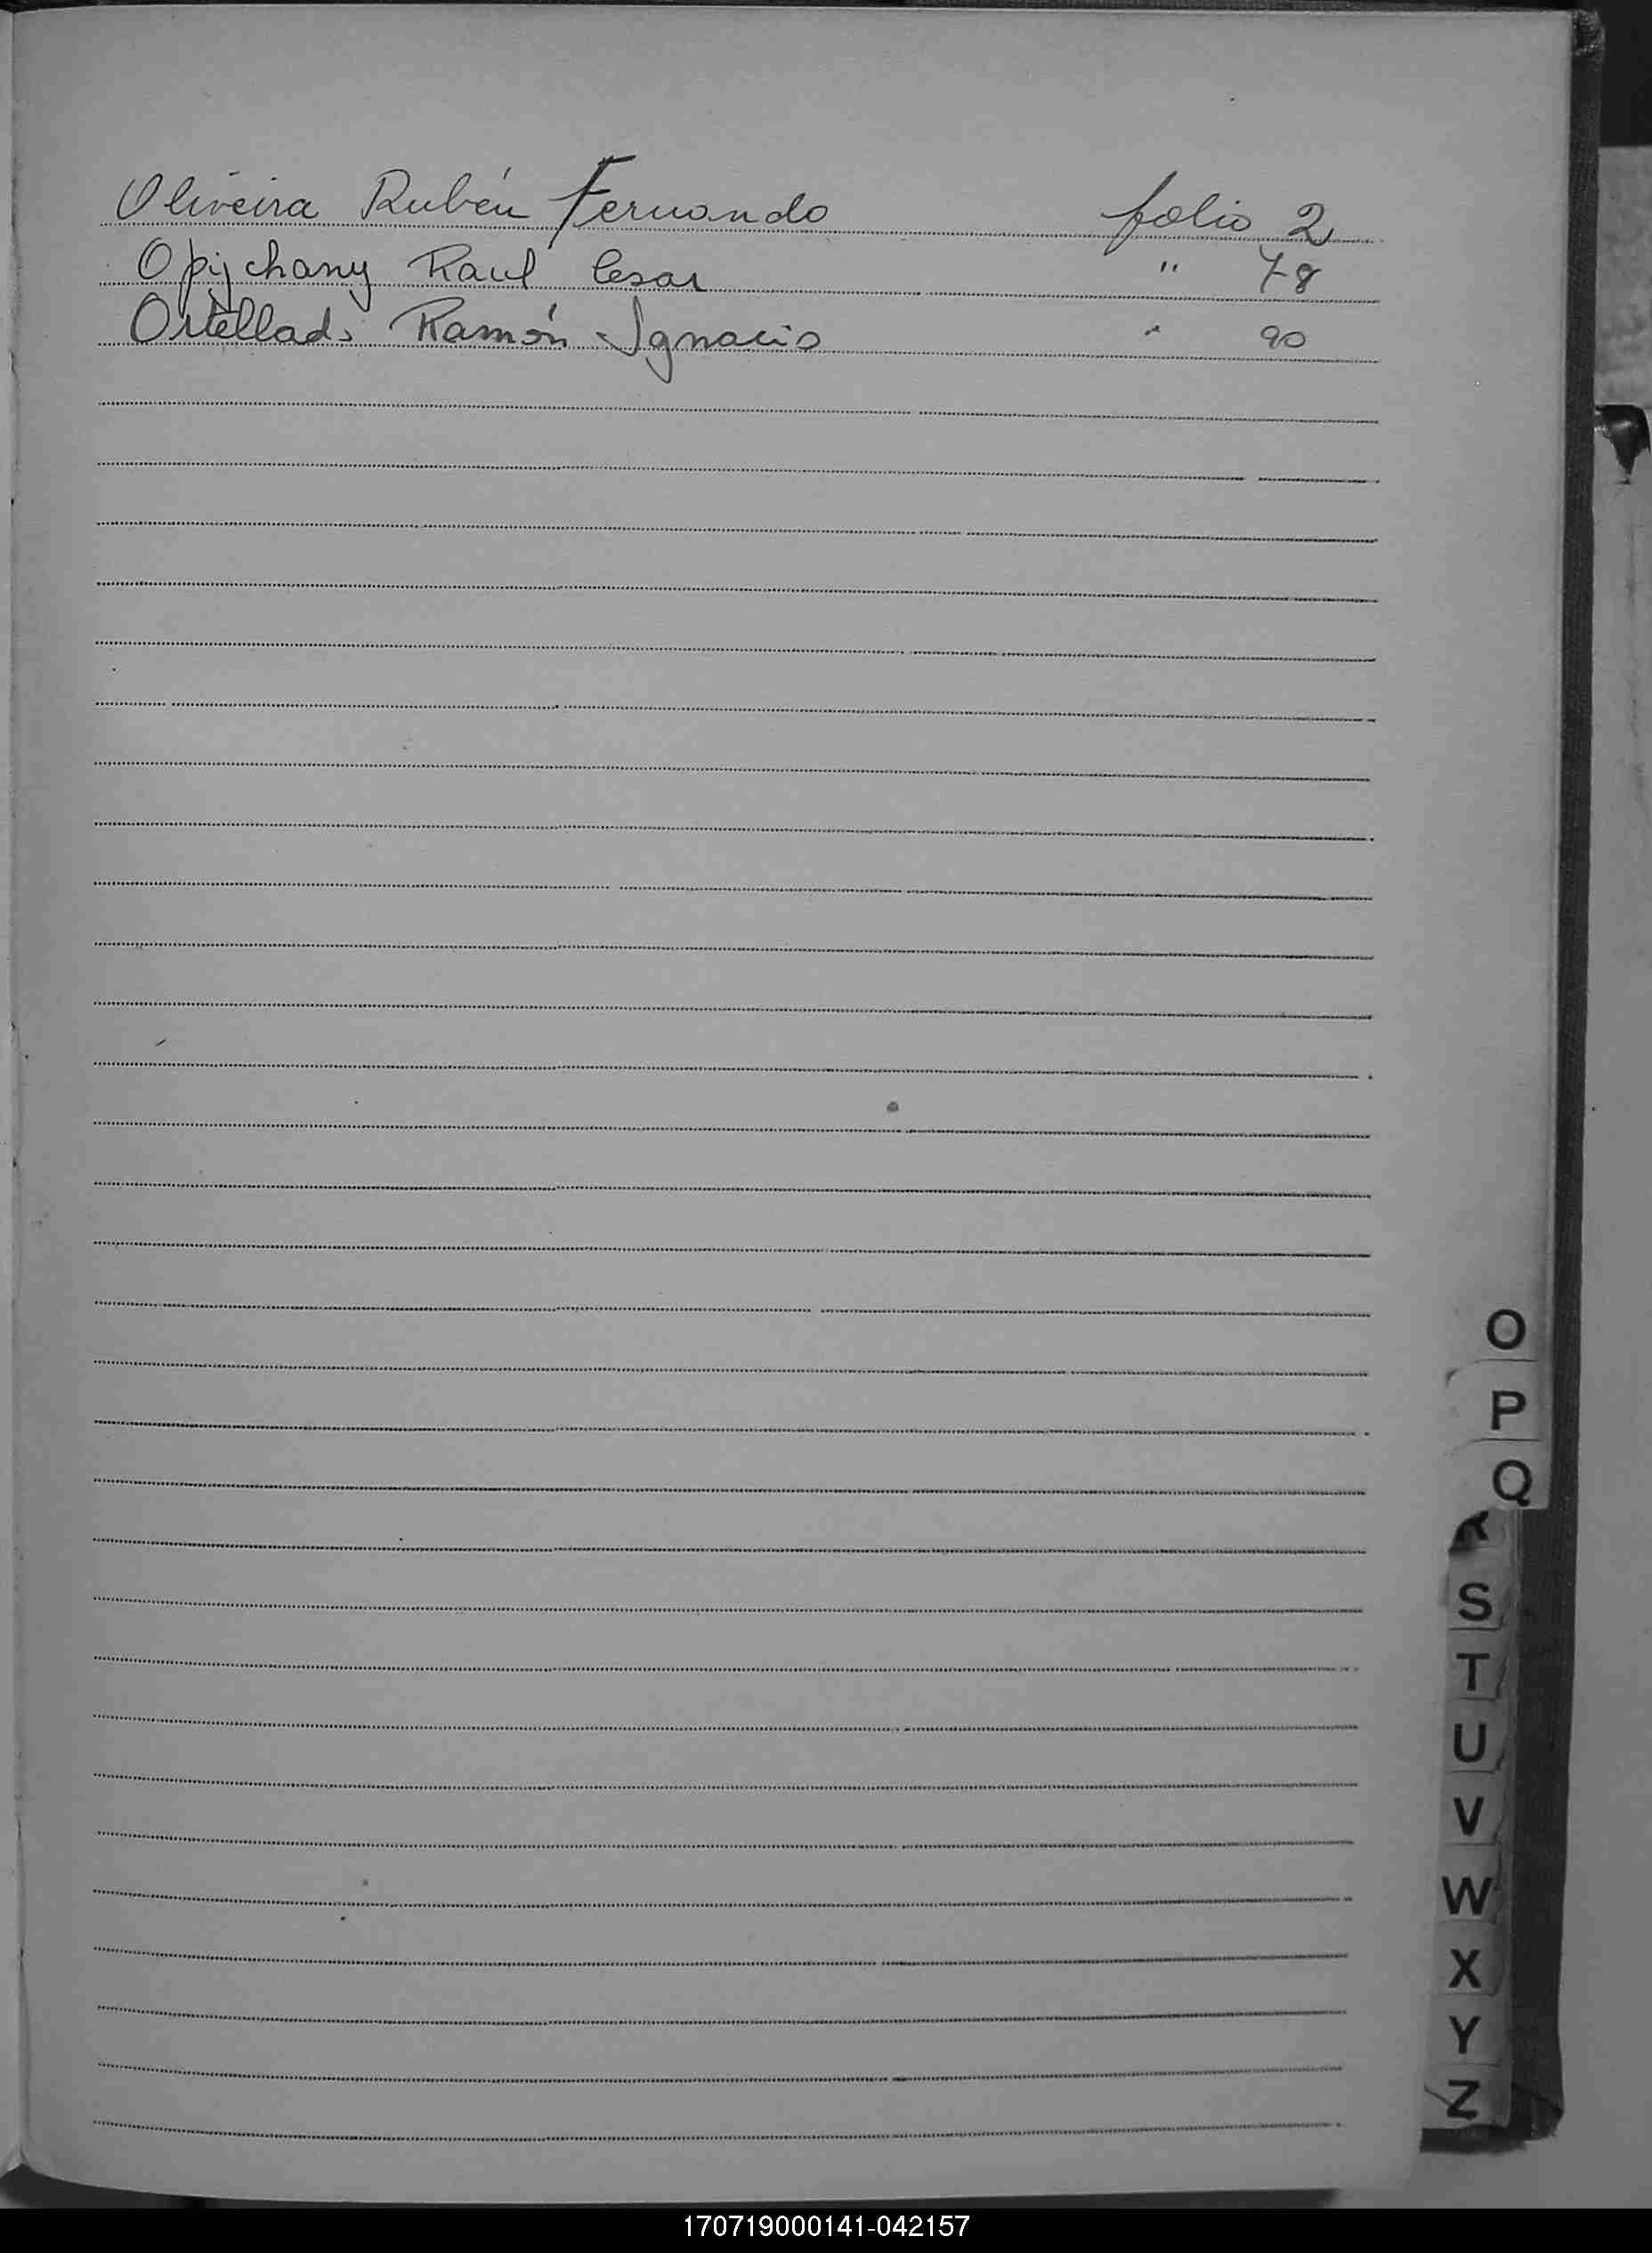 Oliveira Rubén Fernando folio 2
Opijchany Raul Cesar " 78
Ortellado Ramón Ignacio " 90
O
P
Q
R
S
T
U
V
W
X
Y
Z
170719000141-042157